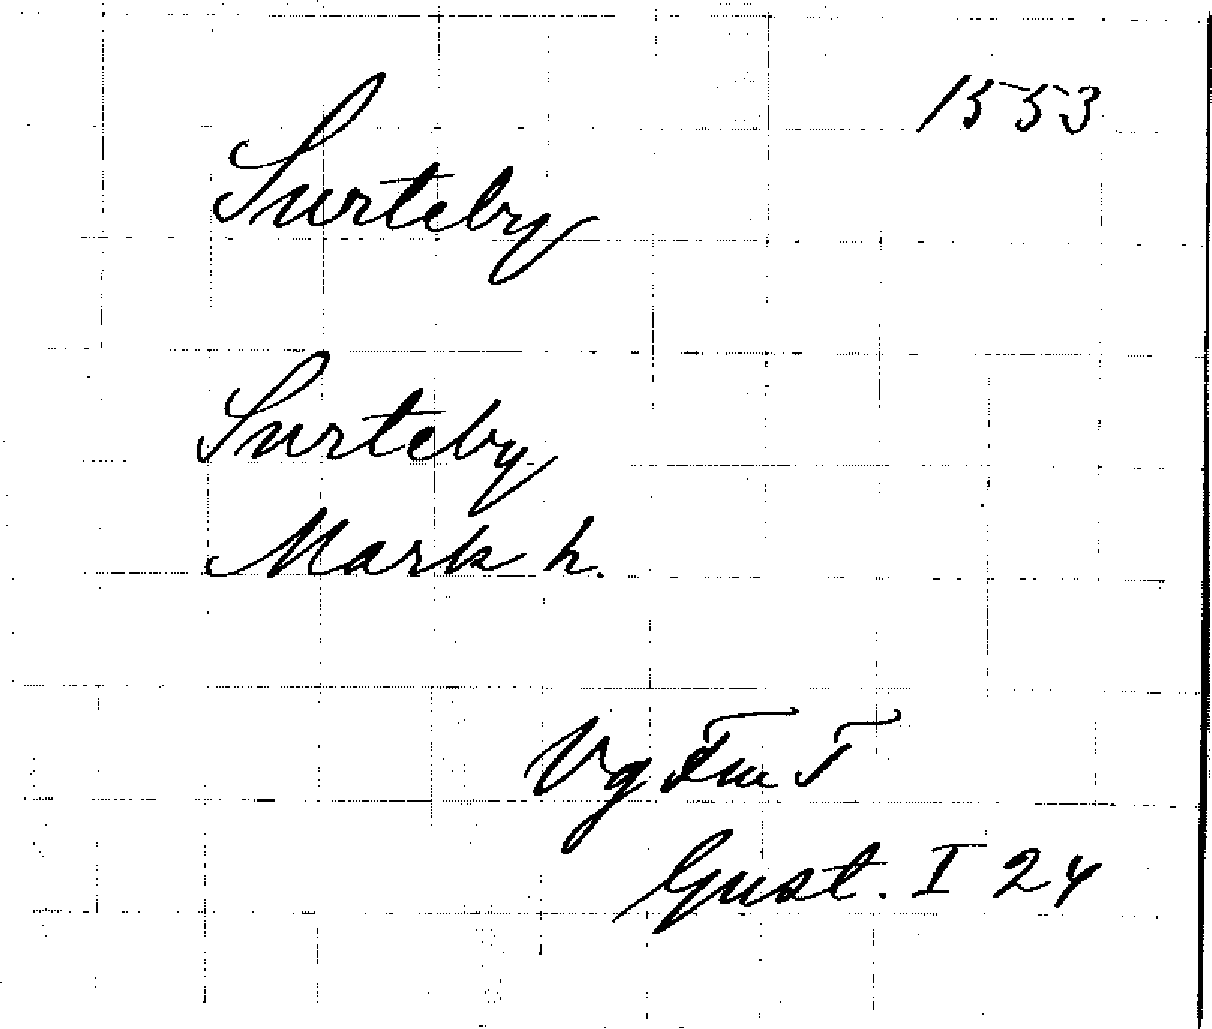 1553
Surteby
Surteby
Mark h.
Vg
Gust. I 24